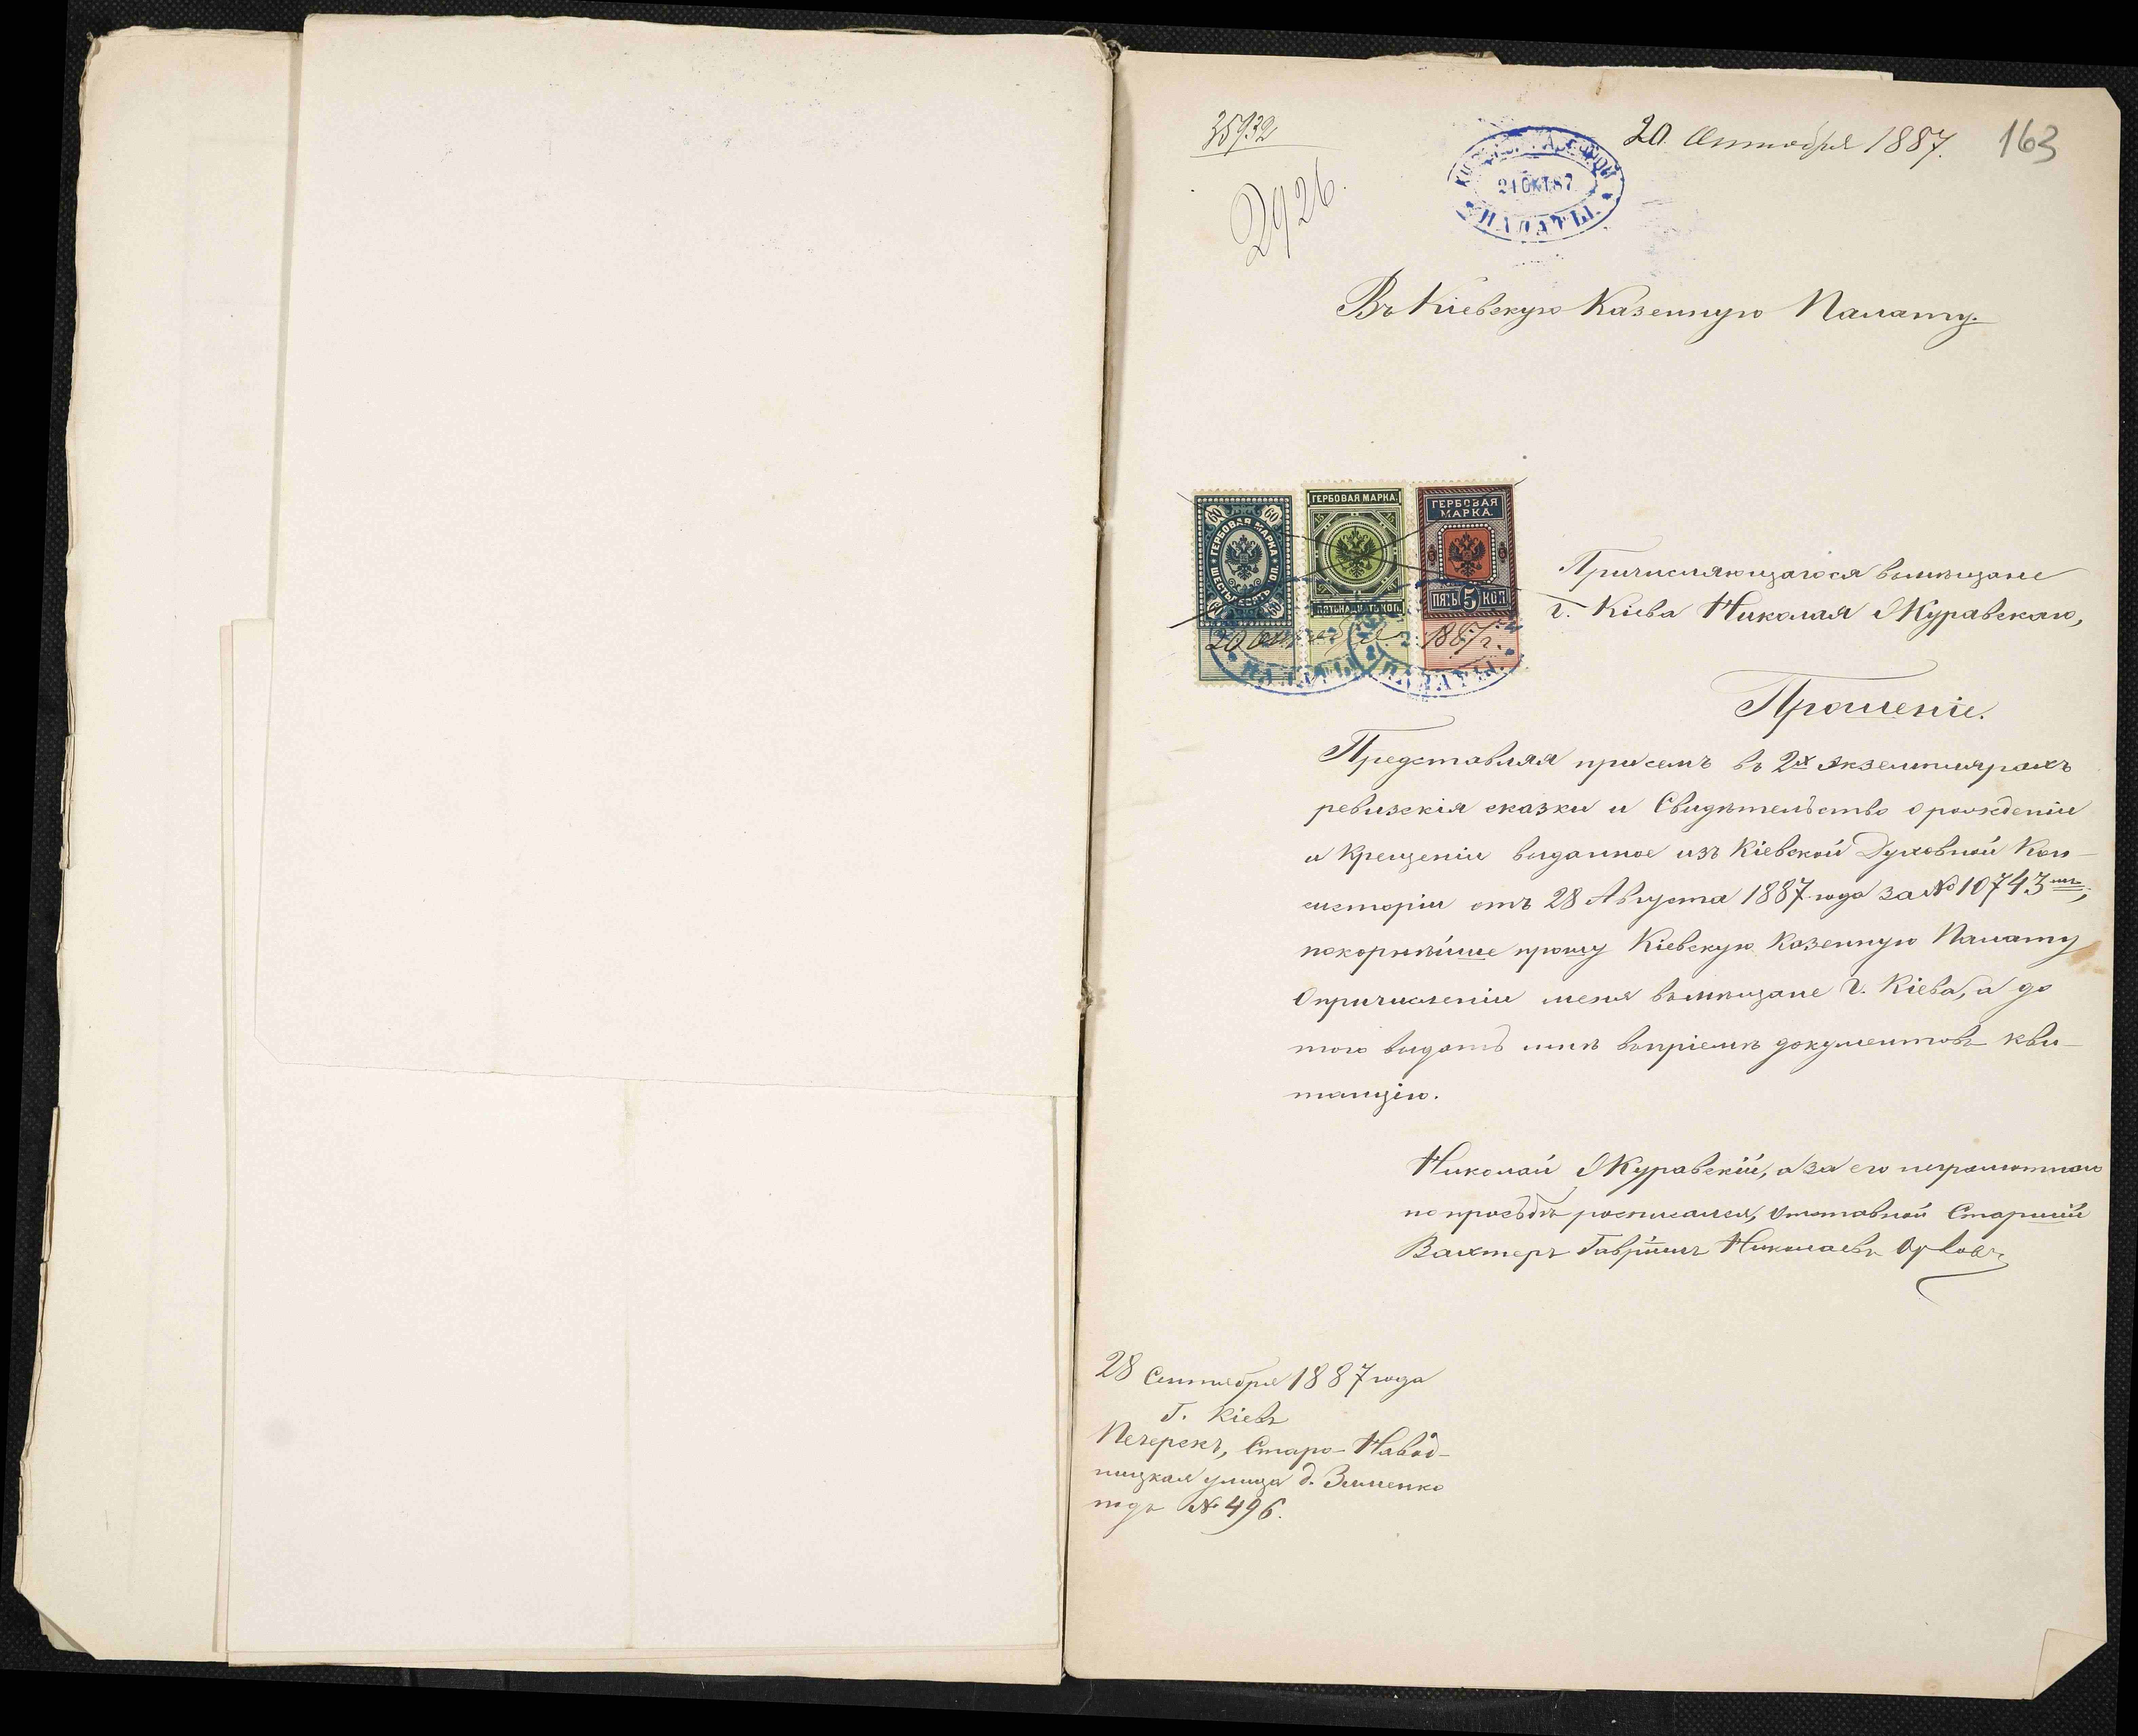 35932
20 Октября 1887.
163
2926.
КІЕВСК. КАЗЕННОЙ
21 ОКТ 87
ПАЛАТЫ.
Въ Кіевскую Казенную Палату.
ГЕРБОВАЯ МАРКА
ШЕСТЬДЕСЯТЪ КОП.
60 60
60 60
ГЕРБОВАЯ МАРКА.
ПЯТЬНАДЦАТЬ КОП.
ГЕРБОВАЯ
МАРКА.
ПЯТЬ 5 КОП
20 октября 1887 г.
ПАЛАТЫ ПАЛАТЫ.
Причисляющагося вмѣщане
г. Кіева Николая Журавскаго,
Прошеніе.
Представляя присемъ въ 2х экземплярахъ
ревизскія сказки и Свидѣтельство о рожденіи
и крещеніи выданное изъ Кіевской Духовной Кон-
систоріи отъ 28 Августа 1887 года за № 10743мъ,
покорнѣйше прошу Кіевскую Казенную Палату
О причисленіи меня вмѣщане г. Кіева, а до
того выдать мнѣ впріемѣ документовъ кви-
танцію.
Николай Журавскій, а за его неграмотнаго
по просьбѣ росписался, Отставной Старшій
Вахтеръ Гавріилъ Николаевъ Орловъ
28 Сентября 1887 года
Г. Кіевъ
Печерскъ, Старо-Навод-
ницкая улица д. Зименко
подъ № 496.